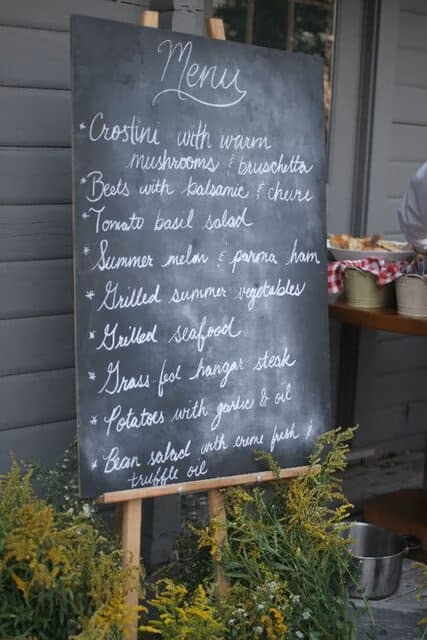 Menu
* Crostini with warm
mushrooms & bruschetta
* Beets with balsamic & chevre
* Tomato basil salad
* Summer melon & parma ham
* Grilled summer vegetables
* Grilled seafood
* Grass fed hangar steak
* Potatoes with garlic & oil
* Bean salad with creme fresh &
truffle oil